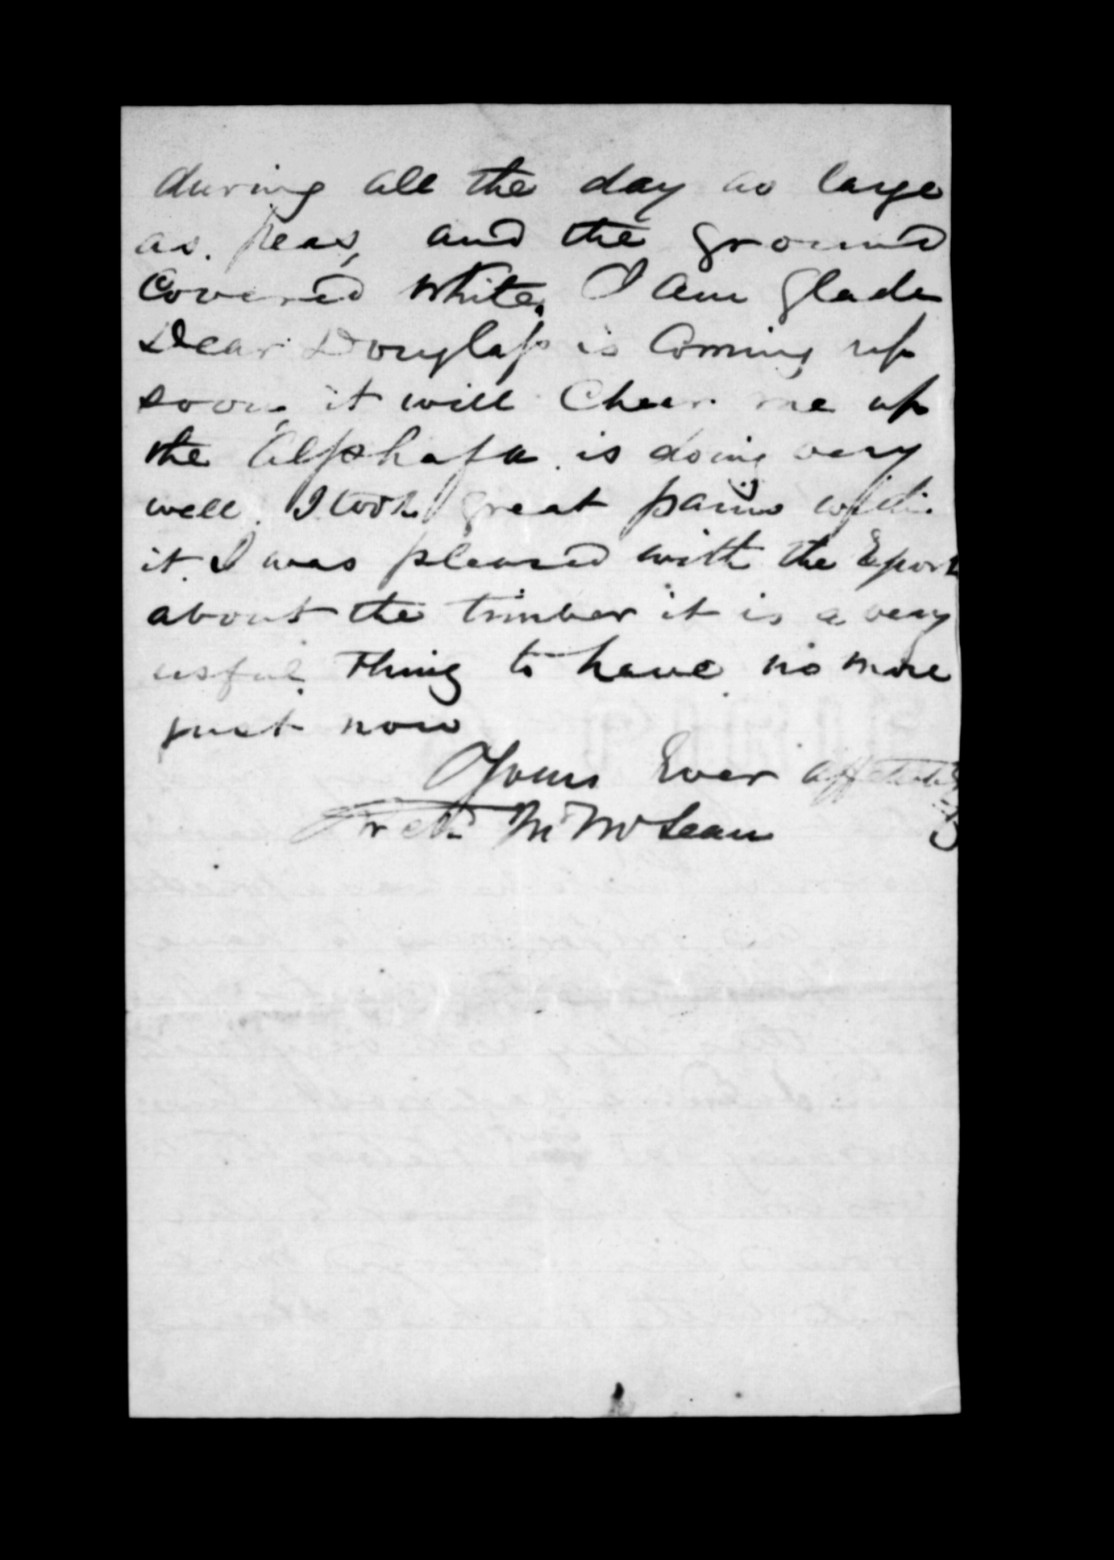 during all the day as large
as. Peas, and the ground
Covered White. I am glade
Dear Douglass is Coming up
soon, it will Cheer me up
the Alphafa is doing very
well. I took great pains with
it. I was pleased with the Eport
about the timber it is a very
usful thing to have no more
just now
Yours Ever affectely
Archd. McLean